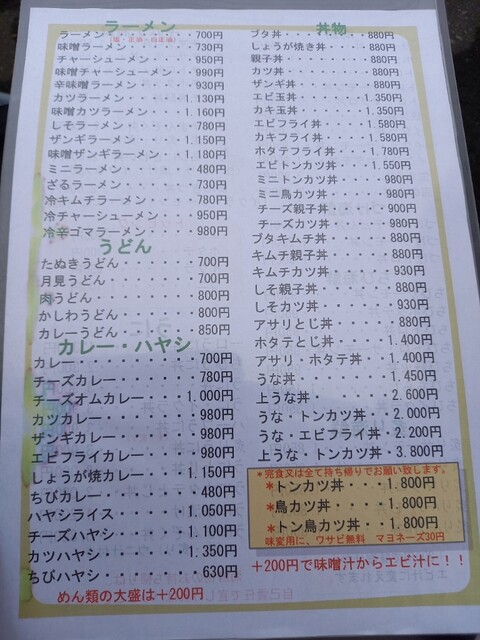 ラーメン
ラーメン・・・・・・・・700円
味噌ラーメン・・・・・・730円
チャーシューメン・・・・950円
味噌チャーシューメン・・990円
辛味噌ラーメン・・・・・930円
カツラーメン・・・・・1.130円
味噌カツラーメン・・・1.160円
しそラーメン・・・・・・780円
ザンギラーメン・・・・1.150円
味噌ザンギラーメン・・1.180円
ミニラーメン・・・・・・480円
ざるラーメン・・・・・・730円
冷キムチラーメン・・・・780円
冷チャーシューメン・・・950円
冷辛ゴマラーメン・・・・980円
うどん
たぬきうどん・・・・・・700円
月見うどん・・・・・・・700円
肉うどん・・・・・・・・800円
かしわうどん・・・・・・800円
カレーうどん・・・・・・850円
カレー・ハヤシ
カレー・・・・・・・・・700円
チーズカレー・・・・・・780円
チーズオムカレー・・・1.000円
カツカレー・・・・・・・980円
ザンギカレー・・・・・・980円
エビフライカレー・・・・980円
しょうが焼カレー・・・1.150円
ちびカレー・・・・・・・480円
ハヤシライス・・・・・1.050円
チーズハヤシ・・・・・1.100円
カツハヤシ・・・・・・1.350円
ちびハヤシ・・・・・・・630円
めん類の大盛は+200円
丼物
ブタ丼・・・・・・・・・880円
しょうが焼き丼・・・・・880円
親子丼・・・・・・・・・880円
カツ丼・・・・・・・・・880円
ザンギ丼・・・・・・・・880円
エビ玉丼・・・・・・・1.350円
カキ玉丼・・・・・・・1.350円
エビフライ丼・・・・・1.580円
カキフライ丼・・・・・1.580円
ホタテフライ丼・・・・1.780円
エビトンカツ丼・・・・1.550円
ミニトンカツ丼・・・・・980円
ミニ鳥カツ丼・・・・・・980円
チーズ親子丼・・・・・・900円
チーズカツ丼・・・・・・980円
ブタキムチ丼・・・・・・880円
キムチ親子丼・・・・・・880円
キムチカツ丼・・・・・・930円
しそ親子丼・・・・・・・880円
しそカツ丼・・・・・・・930円
アサリとじ丼・・・・・・880円
ホタテとじ丼・・・・・1.400円
アサリ・ホタテ丼・・・1.400円
うな丼・・・・・・・・1.450円
上うな丼・・・・・・・2.600円
うな・トンカツ丼・・・2.000円
うな・エビフライ丼・・2.200円
上うな・トンカツ丼・・3.800円
*完食又は全て持ち帰りでお願い致します。
*トンカツ丼・・・・1.800円
*鳥カツ丼・・・・・1.800円
*トン鳥カツ丼・・・1.800円
味変用に、ワサビ無料 マヨネーズ30円
+200円で味噌汁からエビ汁に!!